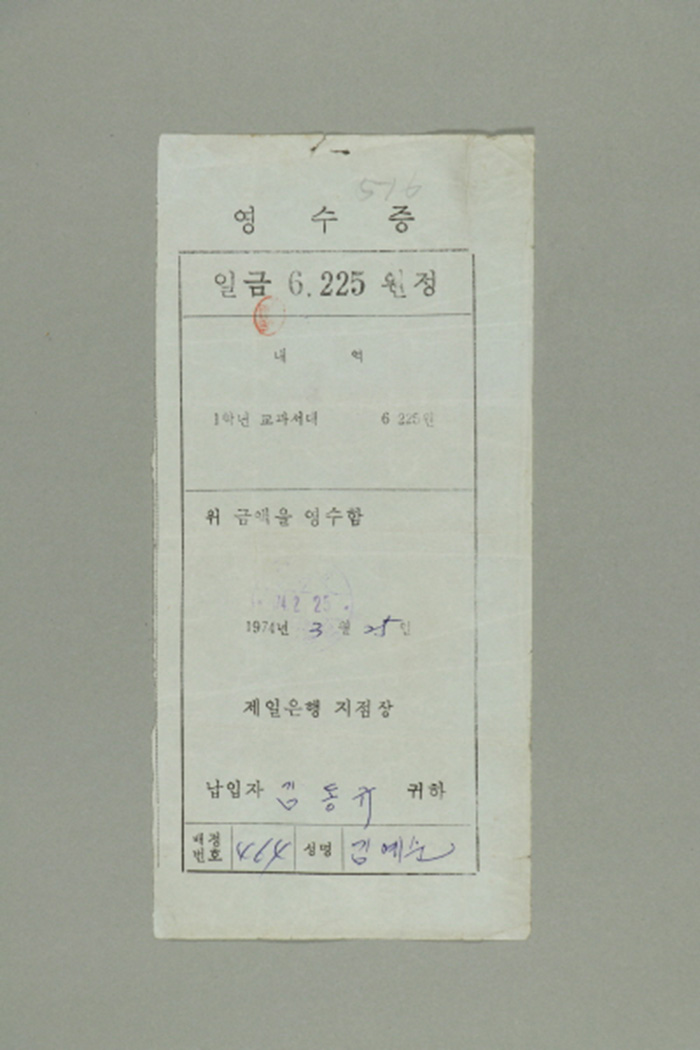 516
영 수 증
일금 6.225 원정
내 역
1학년 교과서대 6 225원
위 금액을 영수함
2 25
1974년 3월 25일
제일은행 지점장
납입자 김동규 귀하
배정번호 494 성명 김예